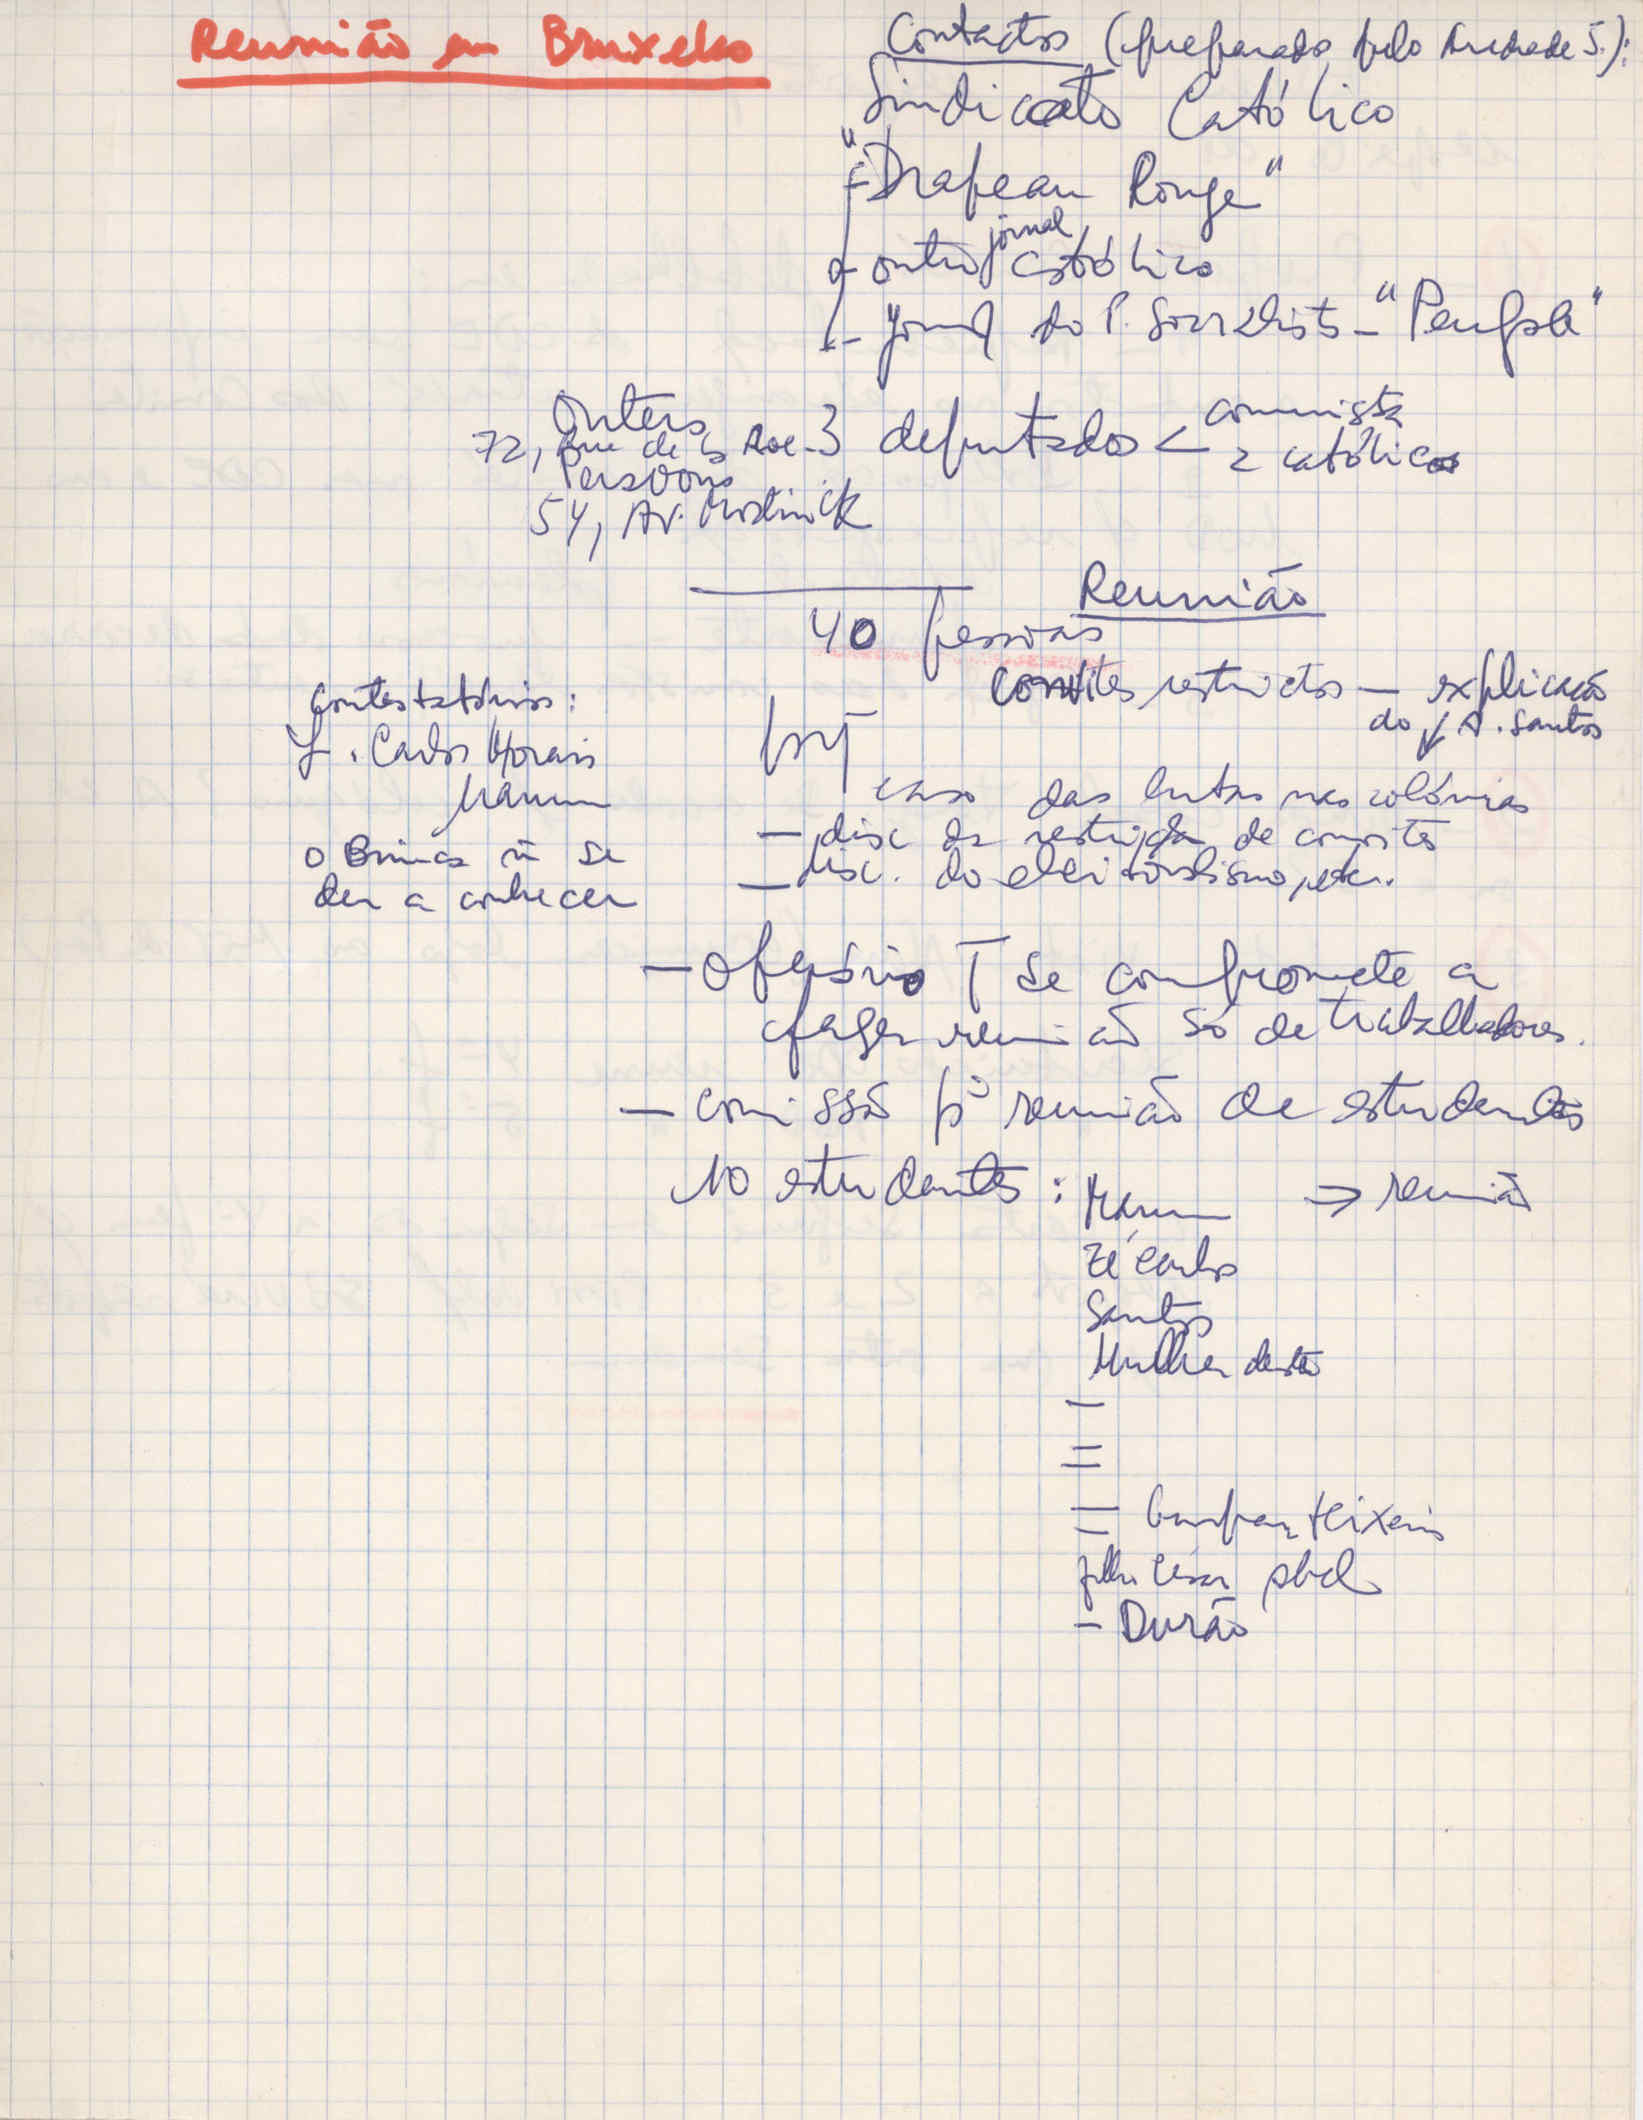 Reunião em Bruxelas
Contactos (preparado pelo Andrade S.):
Sindicato Católico
"Drapeau Rouge"
- outro jornal católico
- jornal do P. Socialista - "Peuple"
Outers
72, Rue de
Persoons
54, Av.
3 deputados < comunista
2 católicos
Reunião
40 pessoas
Convites restrictos — explicação
do A. Santos
Contestatórios:
J. Carlos Morais
o se
deu a conhecer
caso das lutas nas colónias
— disc da restrição de convites
— disc. do eleitoralismo, etc.
— operário T se compromete a
fazer reunião só de trabalhadores.
— comissão pª reunião de estudantes
10 estudantes : → reunião
Zé Carlos
Santos
Mulher deste
—
=
= Teixeira
filho César
- Durão